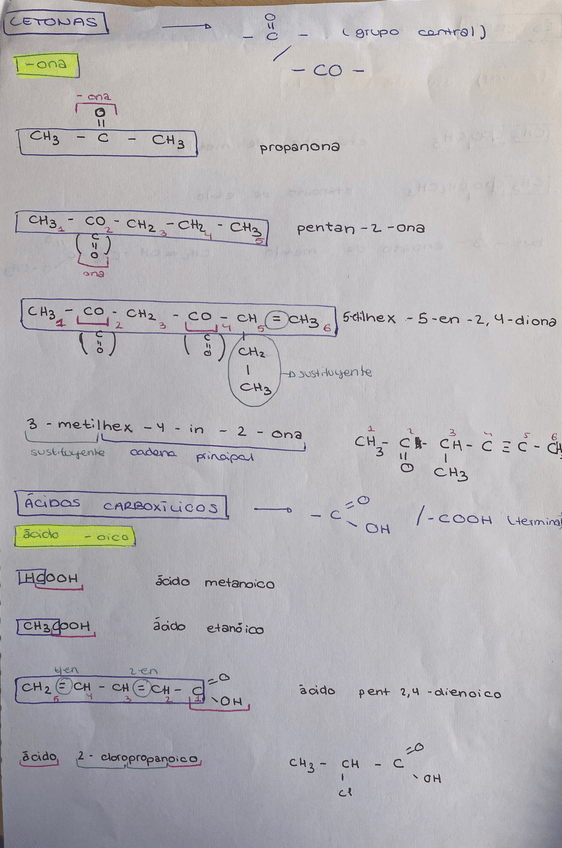 CETONAS → - C - (grupo central)
O
- CO -
-ona
- ona
O
CH3 - C - CH3 propanona
CH3 - CO - CH2 - CH2 - CH3 pentan - 2 - ona
1 2 3 4 5
( C = O )
ona
CH3 - CO - CH2 - CO - CH = CH3 5-etilhex - 5-en -2, 4-diona
1 2 3 4 5 6
( C = O ) ( C = O )
CH2
CH3
sustituyente
3 - metilhex - 4 - in - 2 - ona
sustituyente cadena principal
1 2 3 4 5 6
CH3 - C - CH - C ≡ C - CH
O CH3
ÁCIDOS CARBOXÍLICOS → - C = O OH / - COOH (terminal
ácido - oico
HCOOH ácido metanoico
CH3COOH ácido etanóico
4en 2-en
CH2 = CH - CH = CH - C = O OH ácido pent 2,4 -dienoico
5 4 3 2 1
ácido 2 - cloropropanoico CH3 - CH - C = O OH
Cl